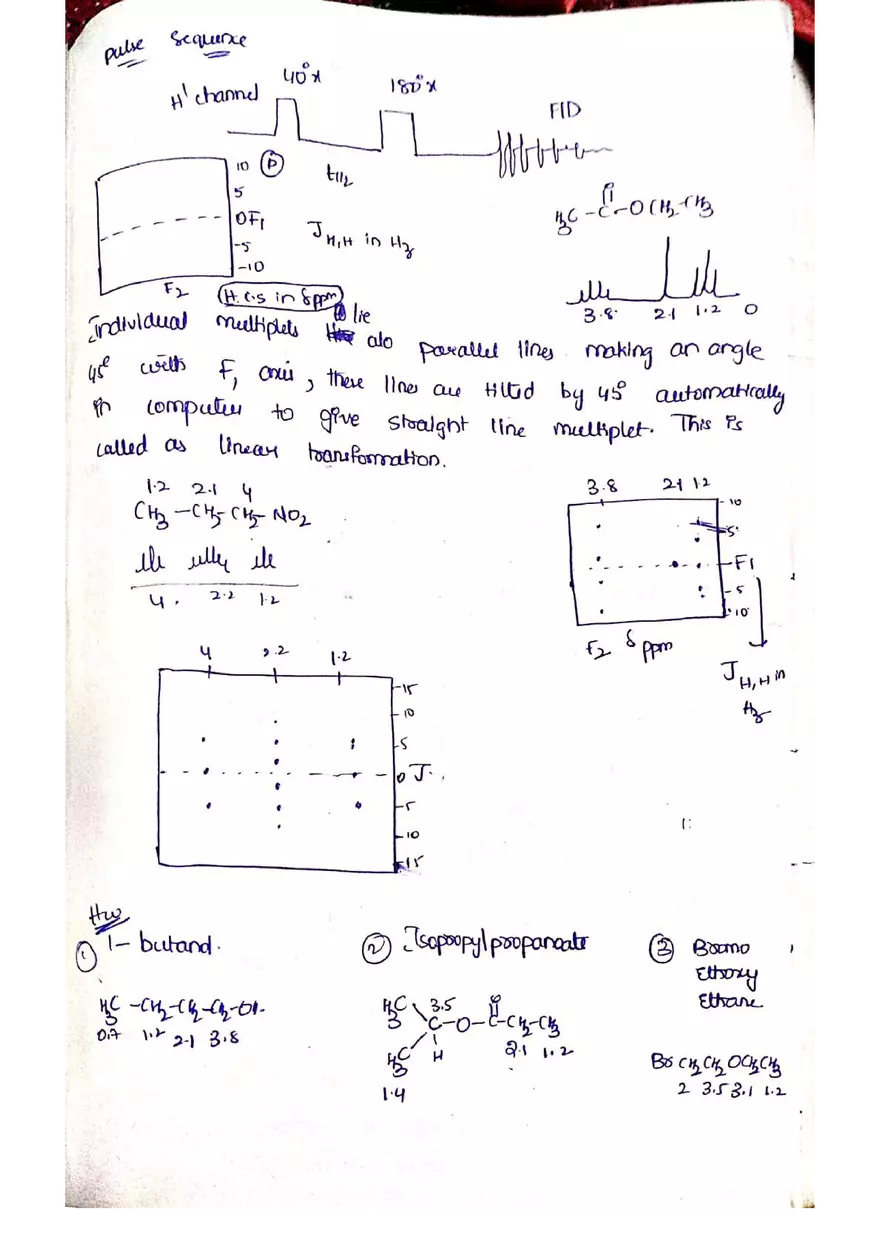 pulse sequence
H' channel 40°x 180°x FID
10 P t1/2
5
0 F1 J H,H in Hz
-5
-10
F2 H.C.s in δ ppm
H3C - C - O CH2-CH3
O
3.8 2.1 1.2 0
Individual multiplets lie alo parallel lines making an angle
45° with F1 axis, these lines are tilted by 45° automatically
in computer to give straight line multiplet. This is
called as linear transformation.
1.2 2.1 4
CH3 - CH2 - CH2 - NO2
4. 2.2 1.2
3.8 2.1 1.2
10
5
F1
-5
-10
F2 δ ppm
J H,H in
Hz
4 2.2 1.2
15
10
5
0 J
-5
-10
-15
Hw
① 1- butanol.
H3C -CH2-CH2-CH2-OH.
0.7 1.2 2.1 3.8
② Isopropyl propanoate
H3C 3.5 O
C-O-C-CH2-CH3
H3C H 2.1 1.2
1.4
③ Bromo
Ethoxy
Ethane
Br CH2 CH2 OCH2CH3
2 3.5 3.1 1.2